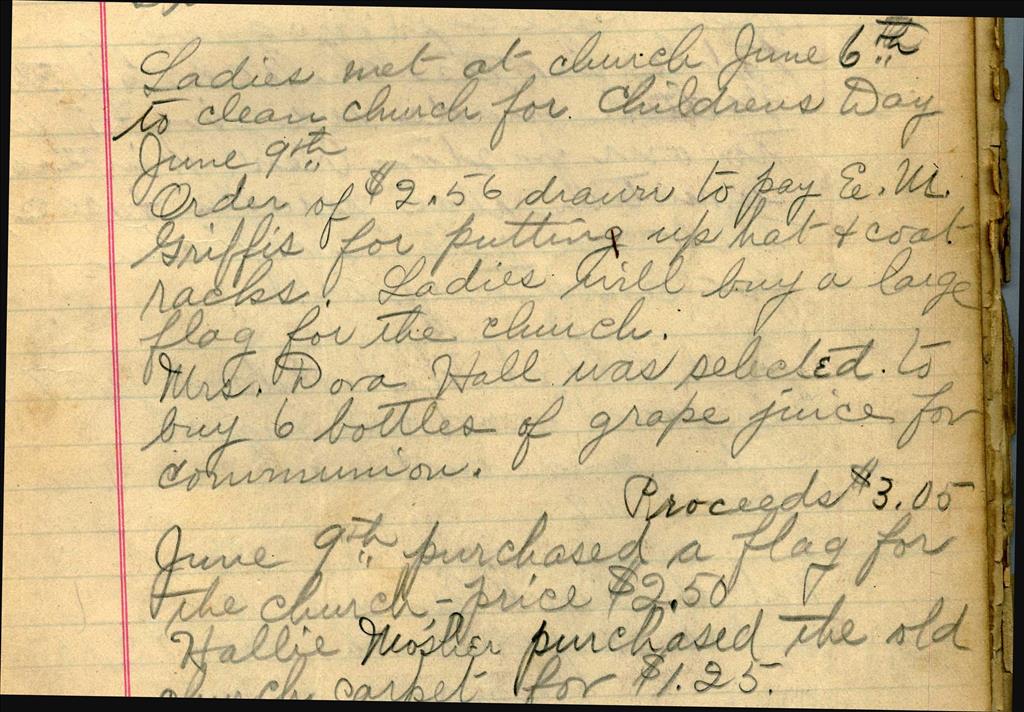 Ladies met at church June 6th
to clean church for Childrens Day
June 9th
Order of $2.56 drawn to pay E. M.
Griffis for putting up hat & coat
racks. Ladies will buy a large
flag for the church.
Mrs. Dora Hall was selected to
buy 6 bottles of grape juice for
communion.
Proceeds $3.05
June 9th purchased a flag for
the church - price $2.50
Hallie Mosher purchased the old
church carpet for $1.25.